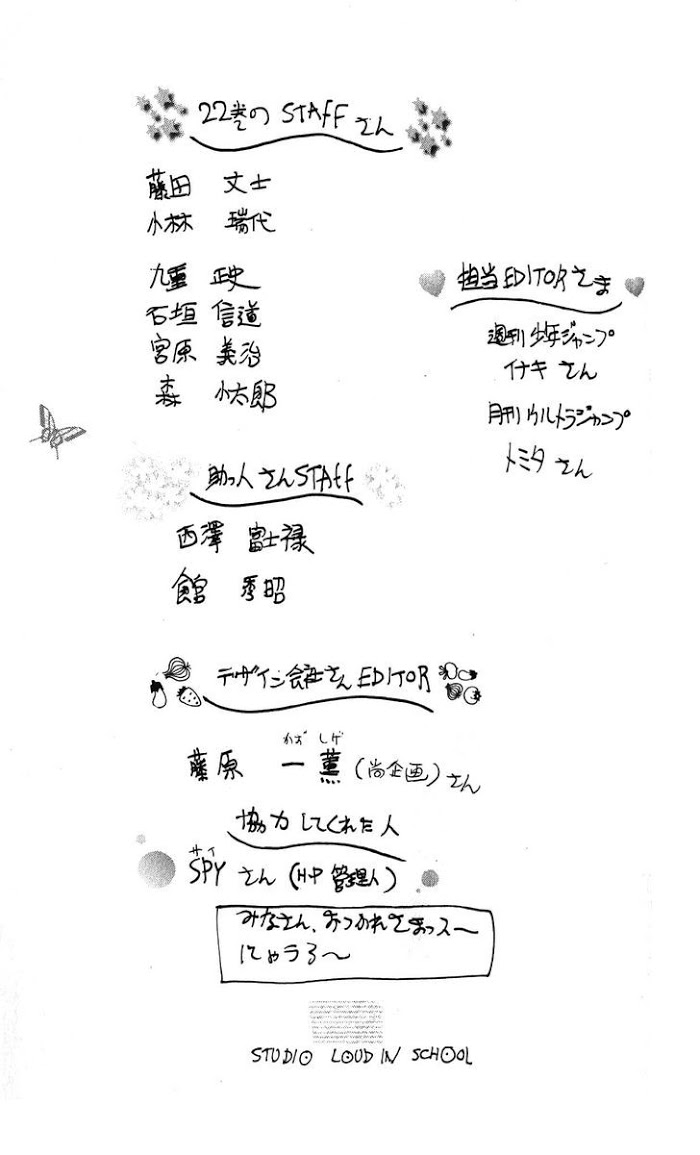 22巻の STAFF さん
藤田 丈士
小林 瑞代
九重 政史
石垣 信道
宮原 義治
森 小太郎
担当EDITORさま
週刊少年ジャンプ
イナキ さん
月刊ウルトラジャンプ
トミタ さん
助っ人さんSTAFF
西澤 富士禄
館 秀昭
デザイン会社さんEDITOR
かずしげ
藤原 一薫(尚企画)さん
協力してくれた人
サイ
SPY さん(HP管理人)
みなさん、おつかれさまっス〜
にゅうろ〜
STUDIO LOUD IN SCHOOL